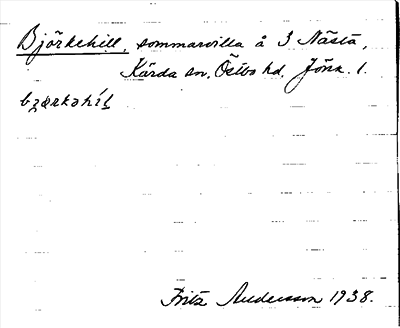 Björkehill, sommarvilla å 3 Nästa,
Kärda sn, Östbo hd. Jönk. l.
Fritz Andersson 1938.